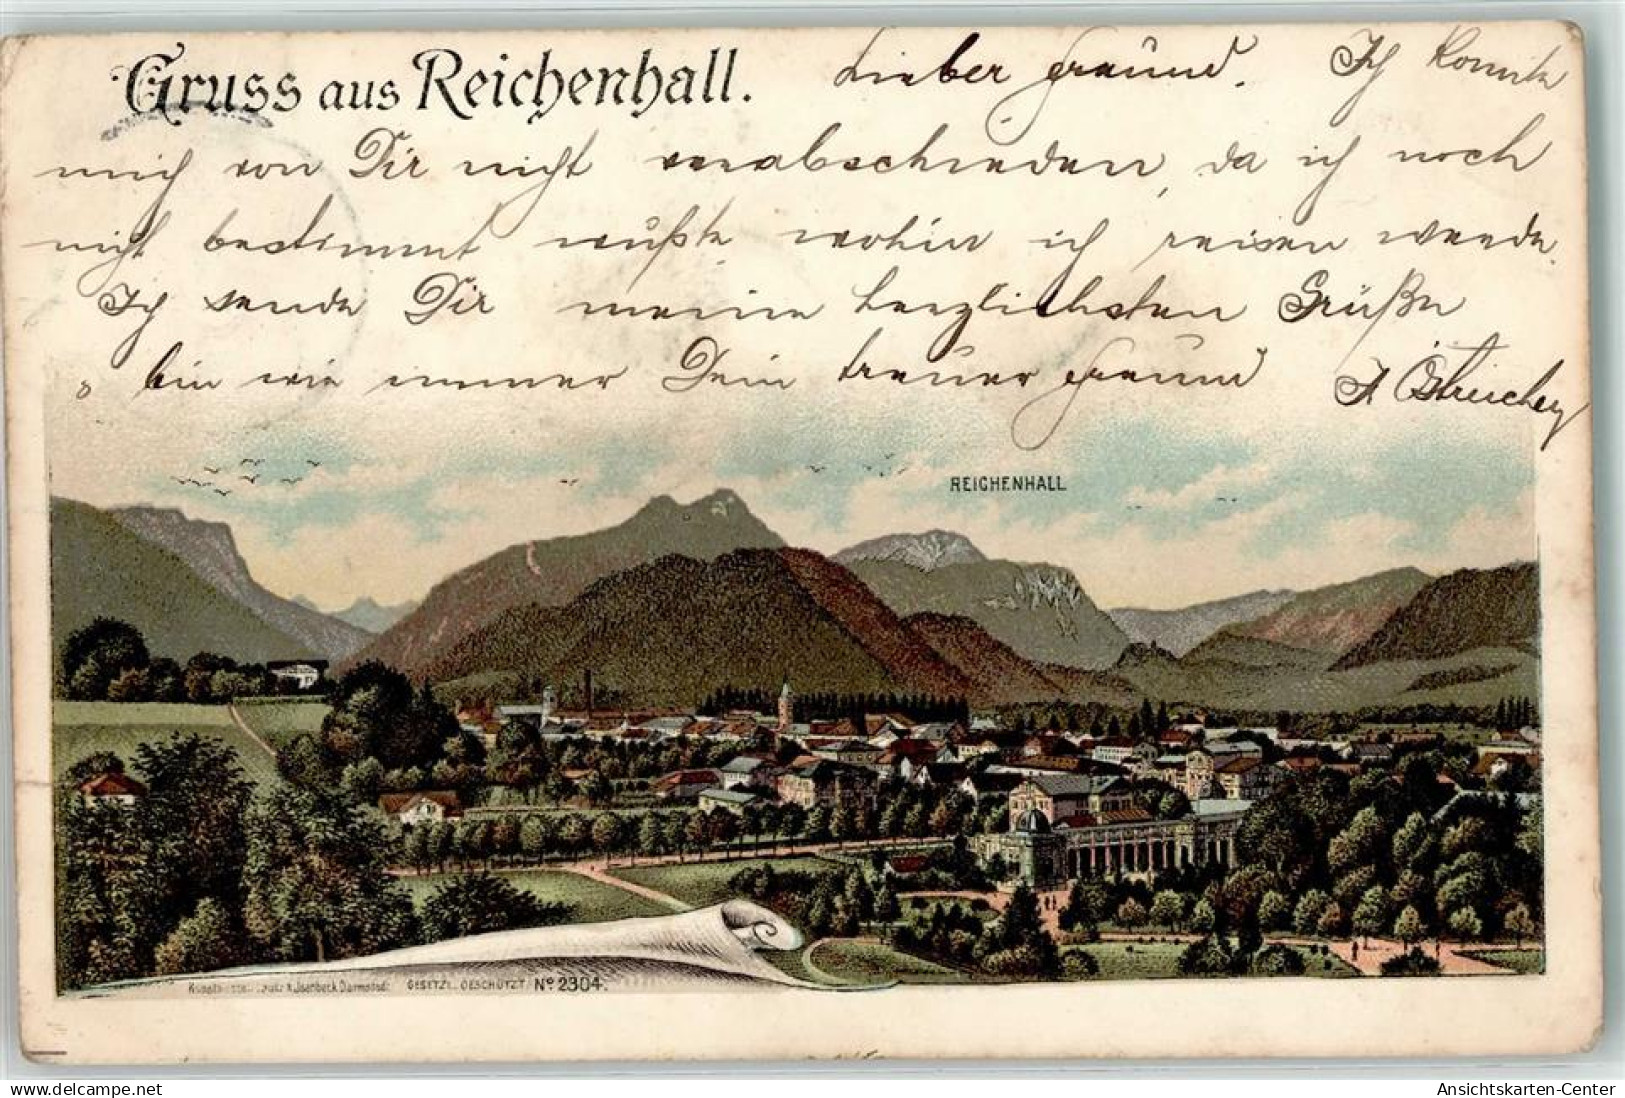 Gruss aus Reichenhall.
Lieber Freund. Ich konnte
mich von Dir nicht verabschieden, da ich noch
nicht bestimmt wußte, wohin ich reisen werde.
Ich sende Dir meine herzlichsten Grüße
bin wie immer Dein treuer Freund
REICHENHALL
GESETZL. GESCHÜTZT No 2304.
www.delcampe.net
Ansichtskarten-Center